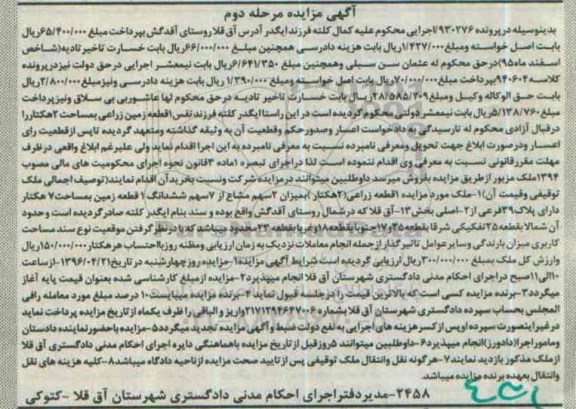 آگهی مزایده مرحله دوم
بدینوسیله در پرونده ۹۳۰۲۷۶/اجرایی محکوم علیه کمال کلته فرزند ایگدر آدرس آق قلا روستای آقدگش پرداخت مبلغ ۶۵/۴۰۰/۰۰۰ ریال
بابت اصل خواسته ومبلغ ۱/۴۲۷/۰۰۰ ریال بابت هزینه دادرسی همچنین مبلغ ۶۶/۰۰۰/۰۰۰ ریال بابت خسارت تاخیر تادیه(شاخص
اسفند ماه۹۵)در حق محکوم له عثمان سن سبلی وهمچنین مبلغ ۶/۶۴۱/۳۵۰ ریال بابت نیمعشر اجرایی در حق دولت نیز در پرونده
کلاسه ۹۴۰۶۰۴ پرداخت مبلغ ۷۰/۰۰۰/۰۰۰ ریال بابت اصل خواسته ومبلغ ۱/۳۹۰/۰۰۰ ریال بابت هزینه دادرسی ونیز مبلغ ۲/۸۰۰/۰۰۰ ریال
بابت حق الوکاله وکیل ومبلغ ۲۸/۵۸۵/۲۰۹ ریال بابت خسارت تاخیر تادیه در حق محکوم لها عاشوربی بی سلاق ونیز پرداخت
مبلغ ۵/۱۳۸/۷۶۰ ریال بابت نیمعشر دولتی محکوم گردیده است در این راستا ایگدر کلته فرزند نفس ۱قطعه زمین زراعی بمساحت ۲هکتار را
در قبال آزادی محکوم له تا رسیدگی به دادخواست اعسار وصدور حکم وقطعیت آن به وثیقه گذاشته ومتعهد گردیده تا پس از قطعیت رای
اعسار ودر صورت ابلاغ جهت تحویل ومعرفی نامبرده نسبت به معرفی نامبرده به این اجرا اقدام نماید ولی علیرغم ابلاغ واقعی در ظرف
مهلت مقرر قانونی نسبت به معرفی وی اقدام ننموده است لذا در اجرای تبصره ۱ماده ۳قانون نحوه اجرای محکومیت های مالی مصوب
۱۳۹۴ملک مزبور از طریق مزایده بفروش میرسد داوطلبین میتوانند در مزایده شرکت ونسبت بخرید آن اقدام نمایند(توصیف اجمالی ملک
توقیفی وقیمت آن)۱-ملک مورد مزایده ۱قطعه زراعی(۲هکتار)بمیزان ۲سهم مشاع از ۷سهم ششدانگ ۱ قطعه زمین بمساحت ۷ هکتار
دارای پلاک ۳۹فرعی از ۲-اصلی بخش ۱۳-آق قلا که در شمال روستای آقدگش واقع بوده و سند بنام ایگدر کلته صادر گردیده است وحدود
آن شمالا بقطعه ۲۵تفکیکی شرقا بقطعه ۱۷و۲۵جنوبا بقطعه ۱۸غربا بقطعه ۲۳-میباشد که با در نظر گرفتن موقعیت نوع سند مساحت
کاربری میزان بارندگی وسایر عوامل تاثیر گذار از جمله انجام معاملات نزدیک به زمان ارزیابی ومظنه روز با احتساب هر هکتار ۱۵۰/۰۰۰/۰۰۰ ریال
وارزش کل ملک بمبلغ ۳۰۰/۰۰۰/۰۰۰ ریال ارزیابی گردیده است شرایط آگهی مزایده ۱-مزایده روز چهارشنبه در تاریخ ۱۳۹۶/۰۴/۲۱-از ساعت
۱۰الی۱۱صبح در اجرای احکام مدنی دادگستری شهرستان آق قلا انجام میپذیرد ۲-مزایده از مبلغ کارشناسی شده بعنوان قیمت پایه آغاز
میگردد۳-برنده مزایده کسی است که بالاترین قیمت را در جلسه قبول نماید ۴-برنده مزایده میبایست ۱۰ درصد مبلغ مورد معامله رافی
المجلس بحساب سپرده دادگستری شهرستان آق قلا بشماره ۲۱۷۱۲۹۴۶۴۷۰۰۶ واریز و الباقی را ظرف یکماه از تاریخ مزایده پرداخت نماید
در غیر اینصورت سپرده او پس از کسر هزینه های اجرایی به نفع دولت ضبط و آگهی مزایده تجدید میگردد۵-مزایده با حضور نماینده دادستان
ومامور اجرا(دادورز)انجام میپذیرد ۶-داوطلبین میتوانند ۵روز قبل از تاریخ مزایده با هماهنگی دایره اجرای احکام مدنی دادگستری آق قلا
از ملک مذکور بازدید نمایند۷-هرگونه نقل وانتقال ملک توقیفی پس از تایید صحت مزایده از ناحیه دادگاه میباشد ۸-کلیه هزینه های نقل
وانتقال بعهده برنده مزایده میباشد.
۲۴۵۸-مدیر دفتر اجرای احکام مدنی دادگستری شهرستان آق قلا -کتوکی